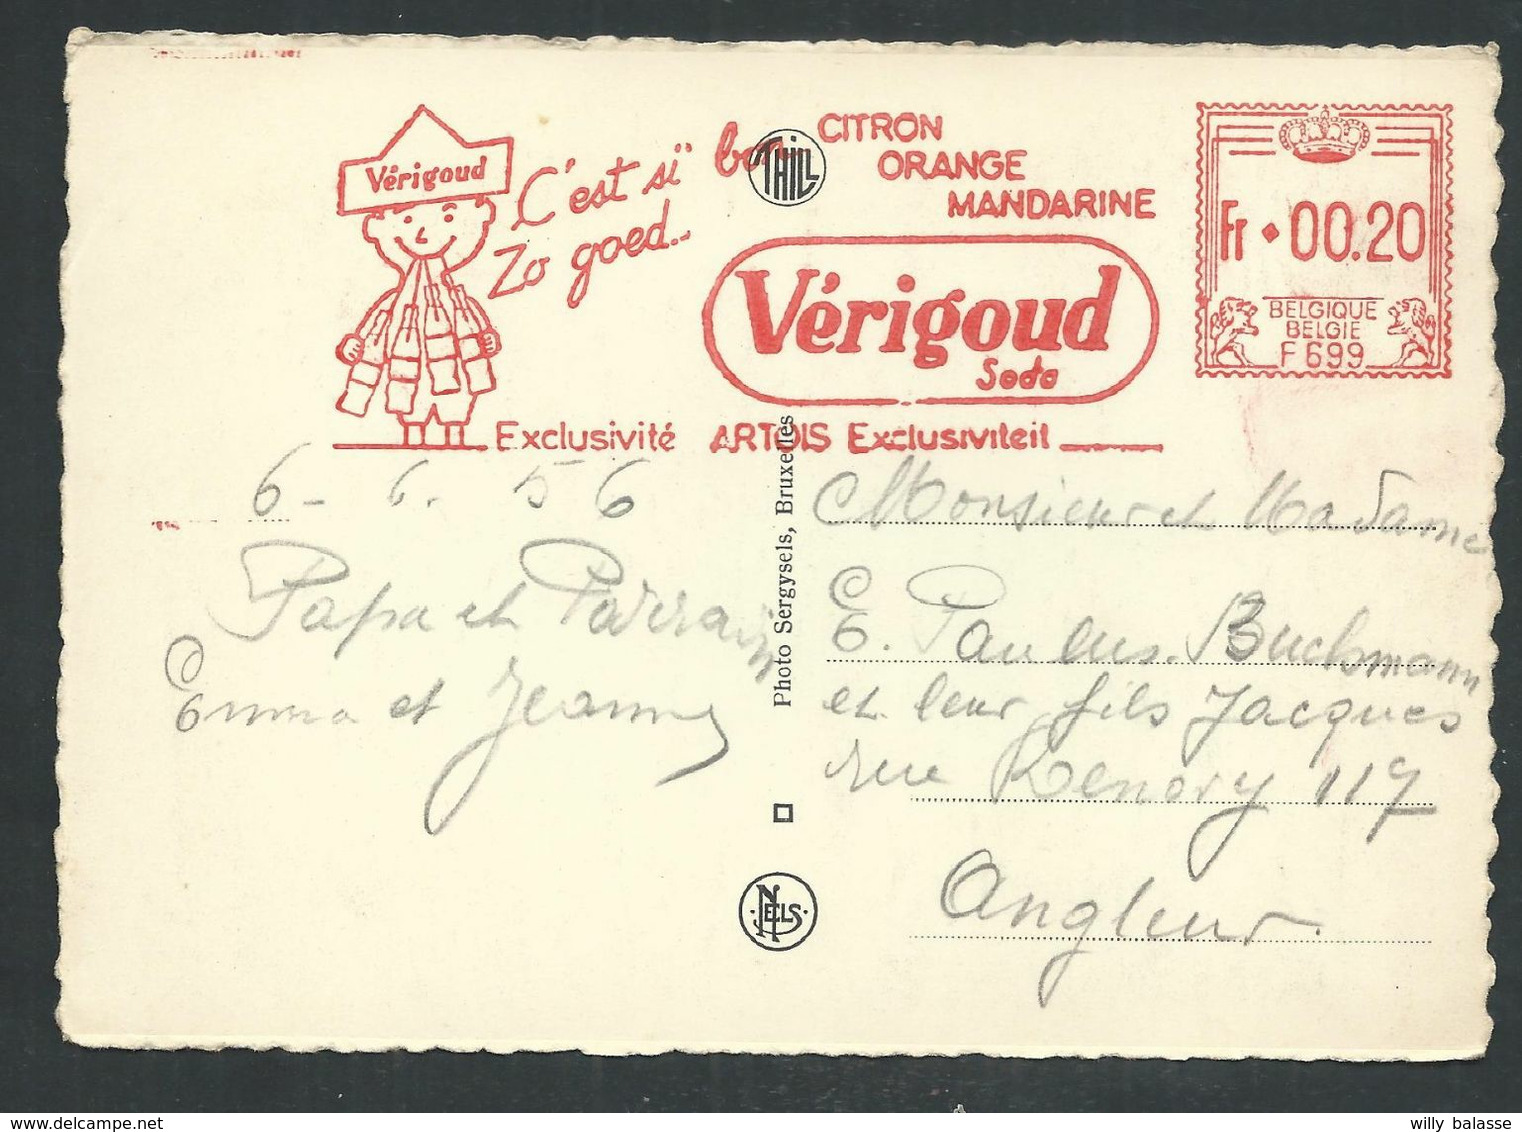 Vérigoud
C'est si bon
Zo goed..
THILL
CITRON
ORANGE
MANDARINE
Vérigoud
Soda
Exclusivité ARTOIS Exclusiviteit
Fr 00.20
BELGIQUE
BELGIE
F 699
6 - 6. 56
Papa et Parrain
Emma et Jeanne
Photo Sergysels, Bruxelles
NELS
Monsieur et Madame
E. Paulus. Buchmann
et leur fils Jacques
rue Renory 117
Angleur.
delcampe.net
willy balasse